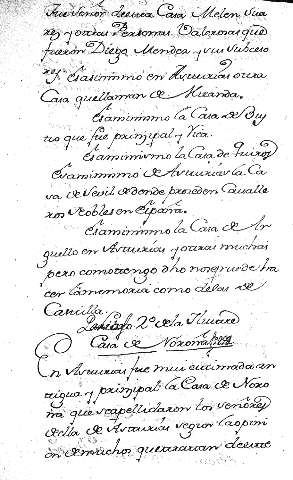 fue Señor de esta Casa Melen Sua
rez y otras Personas Valerosas que
fueron Diego Mendez y sus subceso
res, es asimismo en Asturias otra
Casa que llaman de Miranda.
Es asimismo la Casa de
que fue principal y Rica.
Es asimismo la Casa de Quiros
Es asimismo de Asturias la Ca
sa de de donde proceden Cavalle
ros Nobles en España.
Es asimismo la Casa de Ar
guello en Asturias y otras muchas
pero como tengo dho no se puede ha
cer la memoria como de las de
Castilla.
2º de la Ilustre
Casa de Noroña
En Asturias fue mui estimada an
tigua y principal la Casa de Noro
ña que se apellidaron los señores
de ella de Asturias segun la opini
on de muchos que trataron de este